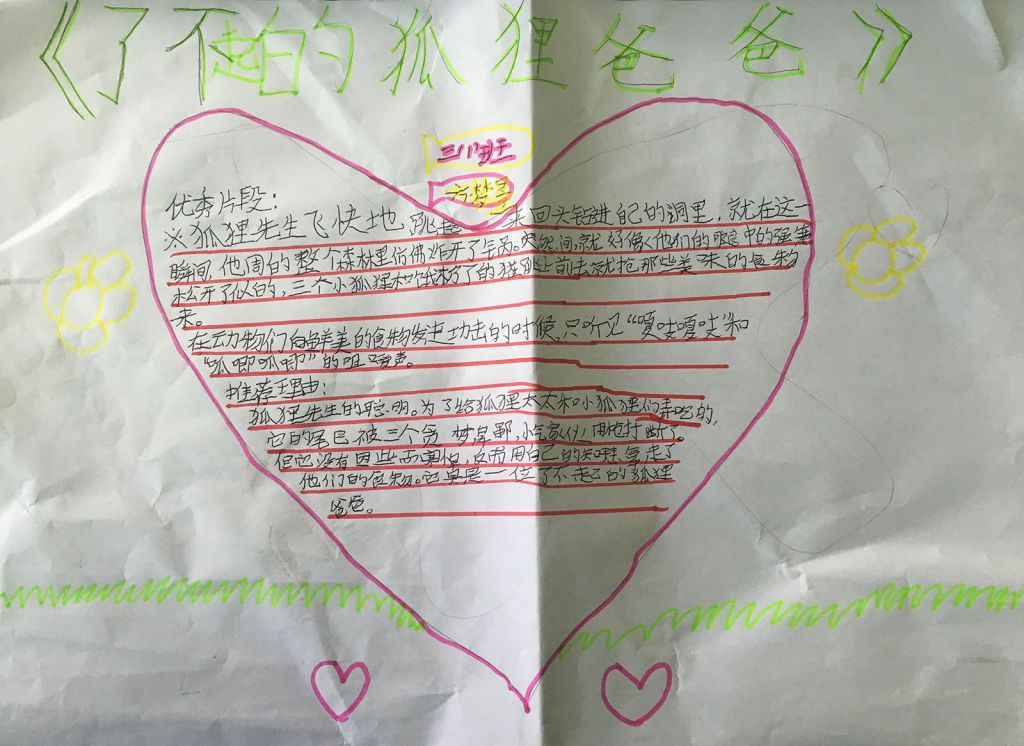 《了不起的狐狸爸爸》
三(1)班
梦
优秀片段：
※狐狸先生飞快地跳 来回头钻进自己的洞里，就在这一
瞬间，他周的整个森林里仿佛炸开了气锅。突然间，就好像他们的眼中的强
松开了似的，三个小狐狸 饿 了的 上前去就抢那些美味的食物
来。
在动物们向鲜美的食物发起功击的时候，只听见“嘎吱嘎吱”和
“呱唧呱唧”的咀嚼声。
推荐理由：
狐狸先生的聪明。为了给狐狸太太和小狐狸们弄吃的，
它的尾巴被三个贪 卑鄙，小气家伙用枪打断了。
但它没有因此而害怕，反而用自己的知 走了
他们的食物。它真是一位了不起的狐狸
爸爸。